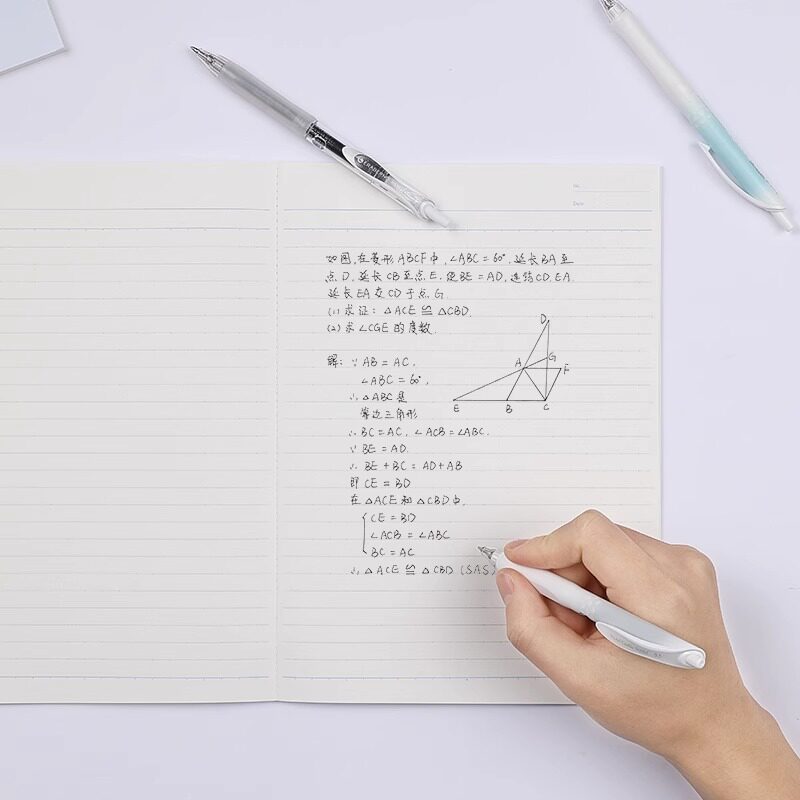 No.
Date
如图,在菱形ABCF中,∠ABC=60°,延长BA至
点D,延长CB至点E,使BE=AD,连结CD,EA,
延长EA交CD于点G
(1)求证:△ACE≌△CBD
(2)求∠CGE的度数.
解:∵AB=AC,
∠ABC=60°,
∴△ABC是
等边三角形
∴BC=AC,∠ACB=∠ABC.
∵BE=AD.
∴BE+BC=AD+AB
即CE=BD
在△ACE和△CBD中,
CE=BD
∠ACB=∠ABC
BC=AC
∴△ACE≌△CBD(SAS)
D
G
A
F
E
B
C